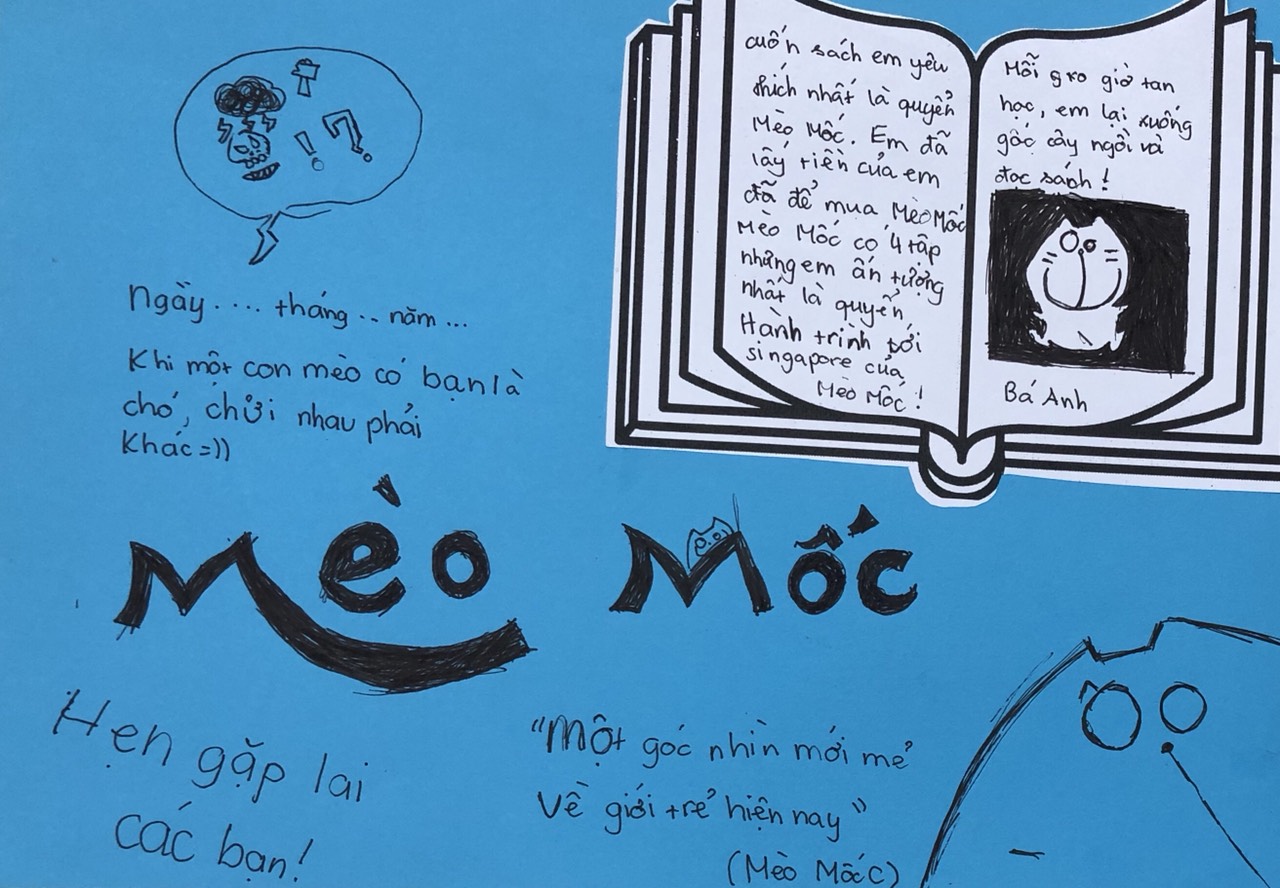 cuốn sách em yêu
thích nhất là quyển
Mèo Mốc. Em đã
lấy tiền của em
đã để mua Mèo Mốc
Mèo Mốc có 4 tập
những em ấn tượng
nhất là quyển
Hành trình tới
singapore của
Mèo Mốc!
Mỗi giờ tan
học, em lại xuống
gốc cây ngồi và
đọc sách!
Bá Anh
! ?
Ngày .... tháng .. năm ...
Khi một con mèo có bạn là
chó, chửi nhau phải
khác =))
Mèo Mốc
Hẹn gặp lại
các bạn!
"Một góc nhìn mới mẻ
về giới trẻ hiện nay"
(Mèo Mốc)